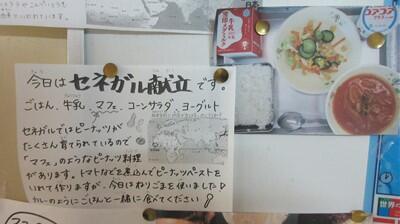 今日は セネガル献立 です。
ごはん、牛乳、マフェ、コーンサラダ、ヨーグルト
セネガルではピーナッツが
たくさん育てられているので
「マフェ」のようなピーナッツ料理
があります。トマトなどを煮込んでピーナッツペーストを
いれて作りますが、今日はねりごまを使いました♪
カレーのようにごはんと一緒に食べてください!
牛乳
世界の